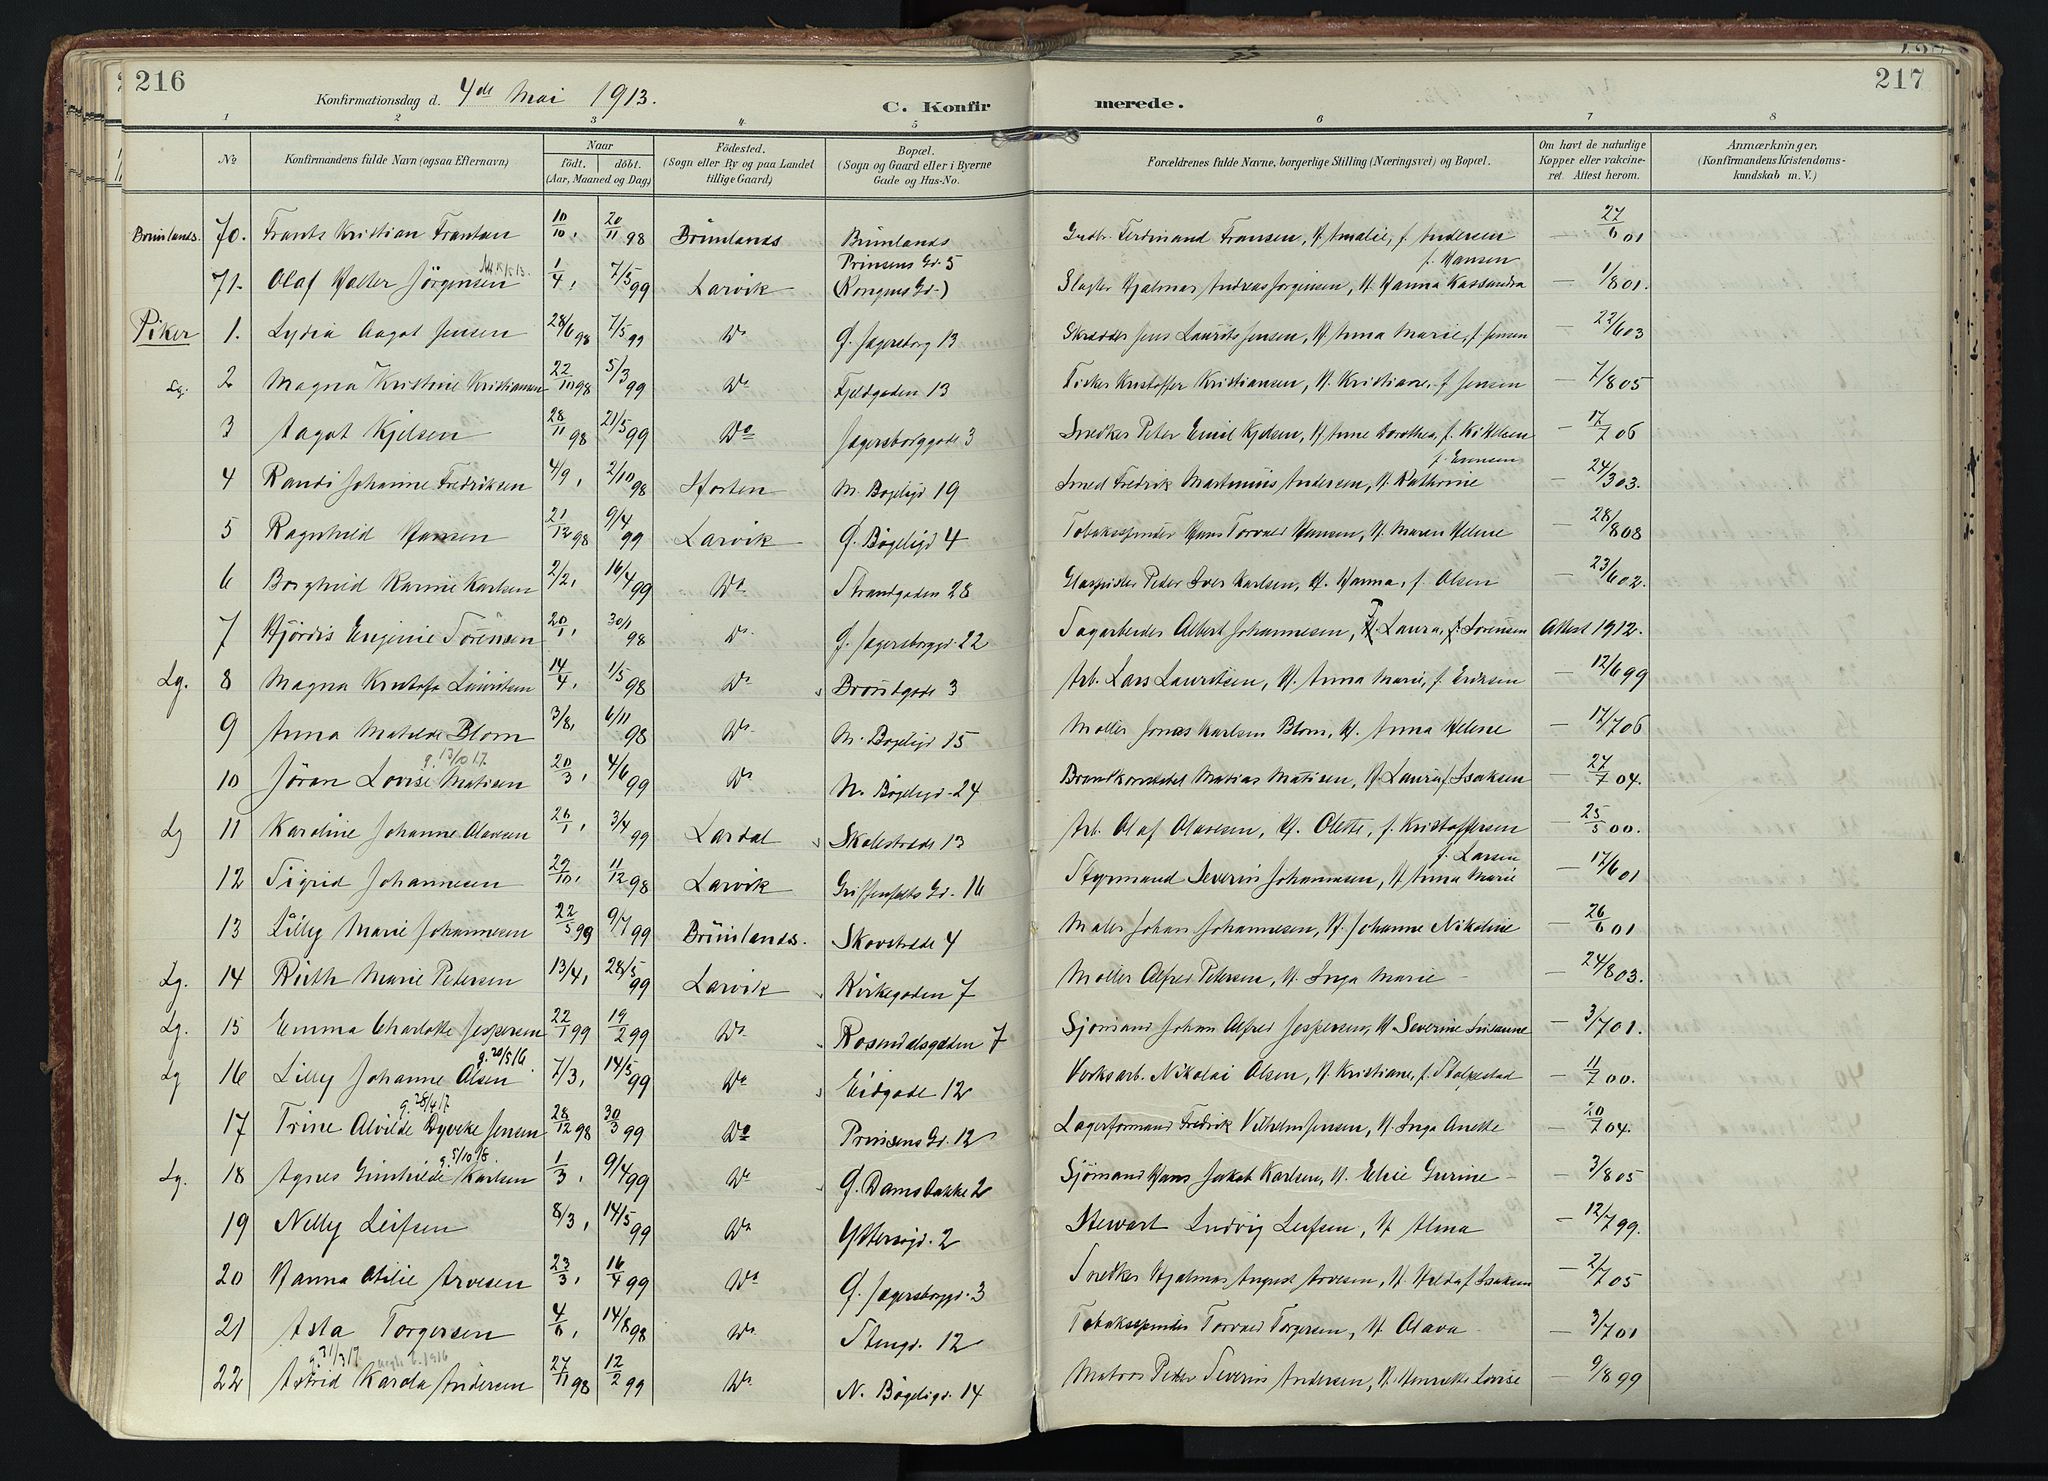 216
217
Konfirmationsdag d. 4de Mai 1913.
C. Konfirmerede.
1 2 3 4 5 6 7 8
No
Konfirmandens fulde Navn (ogsaa Efternavn)
Naar
født. døbt.
(Aar, Maaned og Dag)
Fødested.
(Sogn eller By og paa Landet tillige Gaard)
Bopæl.
(Sogn og Gaard eller i Byerne Gade og Hus-No.
Forældrenes fulde Navne, borgerlige Stilling (Næringsvei) og Bopæl.
Om havt de naturlige Kopper eller vakcineret. Attest herom.
Anmærkninger,
(Konfirmandens Kristendomskundskab m. V.)
Brunlands. 70. Frants Kristian Frantsen 10/10, 20/11 98 Brunlands Brunlands Ferdinand Fransen, H. Amalie, f. Andersen — 27/6 01
71. Olaf Walter Jörgensen 1/4, 7/5 99 Larvik Prinsens Gd. 5 (Kongens Gd.) Slagter Hjalmar Andreas Jorgensen, H. Hanna Kassandra f. Hansen — 1/8 01.
Piker 1. Lydia Aagot Jensen 28/6 98 7/5 99 Do Ø. Jegersborg 13 Skrædder Jens Laurits Jensen, H. Anna Marie, f. Jensen — 22/6 03
Lg. 2 Magna Kristine Kristiansen 22/10 98 5/3 99 Do Fjeldgaden 13 Fisker Kristoffer Kristiansen, H. Kristiane, f. Jensen — 7/8 05
3 Aagot Kjelsen 28/11 98 21/5 99 Do Jegersborggade 3 Snedker Peter Emil Kjelsen, H. Anne Dorothea, f. Kittelsen — 17/7 06
4 Randi Johanne Fredriksen 4/9, 2/10 98 Horten M. Bøgeligd 19 Smed Fredrik Martinius Andersen, H. Kathrine f. Evensen — 24/3 03.
5 Ragnhild Hansen 21/12 98 9/4 99 Larvik Ø. Bøgeligd 4 Tobaksspinder Hans Torvald Hansen, H. Maren Helene — 28/8 08
6 Borghild Karine Karlsen 2/2, 16/4 99 Do Strandgaden 28 Glaspuster Peder Iver Karlsen, H. Hanna, f. Olsen — 23/6 02.
7 Hjördis Eugenie Sörensen 20/1, 30/1 98 Do Ø. Jegersborggd. 22 Sagarbeider Albert Johannesen, Laura, Sorensen Attest 1912.
Lg. 8 Magna Kristofa Lauritsen 14/4, 1/5 98 Do Brondgade 3 Arb. Lars Lauritsen, H. Anna Marie, f. Eriksen — 12/6 99
9 Anna Matilde Blom 3/8, 6/11 98 Do M. Bøgeligd 15 Moller Jonas Karlsen Blom, H. Anna Helene — 17/7 06
g. 13/10 17
10 Jöran Lovise Matisen 20/3, 4/6 99 Do N. Bøgeligd. 24 Brandkonstabel Matias Matisen, H. Laura f. Isaksen — 27/7 04.
Lg 11 Karoline Johanne Olavesen 26/1, 3/4 99 Lardal Skolestræde 13 Arb. Olaf Olavesen, H. Olette, f. Kristoffersen — 25/5 00.
12 Sigrid Johannesen 22/10, 11/12 98 Larvik Griffenfelts Gd. 16 Styrmand Severin Johannesen, H. Anna Marie f. Larsen — 17/6 01
13 Lilly Marie Johannesen 22/5 99 9/7 99 Brunlands. Skovstræde 4 Maler Johan Johannesen, H. Johanne Nikoline — 26/6 01
Lg. 14 Ruth Marie Petersen 13/4, 28/5 99 Larvik Kirkegaden 7 Moller Alfred Petersen, H. Inga Marie — 24/8 03.
Lg. 15 Emma Charlotte Jespersen 22/1 99 19/2 99 Do Rosendalsgaden 7 Sjomand Johan Alfred Jespersen, H. Severine Susanne — 3/7 01.
g. 20/5 16.
Lg 16 Lilly Johanne Olsen 7/3, 14/5 99 Do Eidgade 12 Verksarb. Nikolai Olsen, H. Kristiane, f. Stolpestad — 11/7 00.
g. 28/4 17
17 Trine Alvilde Dyveke Jensen 28/12 98 30/3 99 Do Prinsens Gd. 12 Lagerformand Fredrik Vilhelm Jensen, H. Inga Anette — 20/7 04.
g. 5/10 18.
Lg. 18 Agnes Gunhilde Karlsen 1/3, 9/4 99 Do Ø. Damsbakke 2 Sjömand Hans Jakob Karlsen, H. Elise Gurine — 3/8 05
19 Nelly Leifsen 8/3, 14/5 99 Do Yttersøgd. 2 Stewart Ludvig Leifsen, H. Alma — 12/7 99.
20 Hanna Otilie Arvesen 23/3, 16/4 99 Do Ø. Jegersborggd. 3 Snedker Hjalmar August Arvesen, H. Hilda f. Isaksen — 2/7 05
21 Asta Torgersen 4/6, 14/8 98 Do Stengd. 12 Tobaksspinder Torvald Torgersen, H. Olava — 3/7 01
g. 31/3 17
22 Astrid Karola Andersen 27/11 98 12/2 99 Do N. Bøgeligd. 14 Matros Peder Severin Andersen, H. Henriette Lovise — 9/8 99